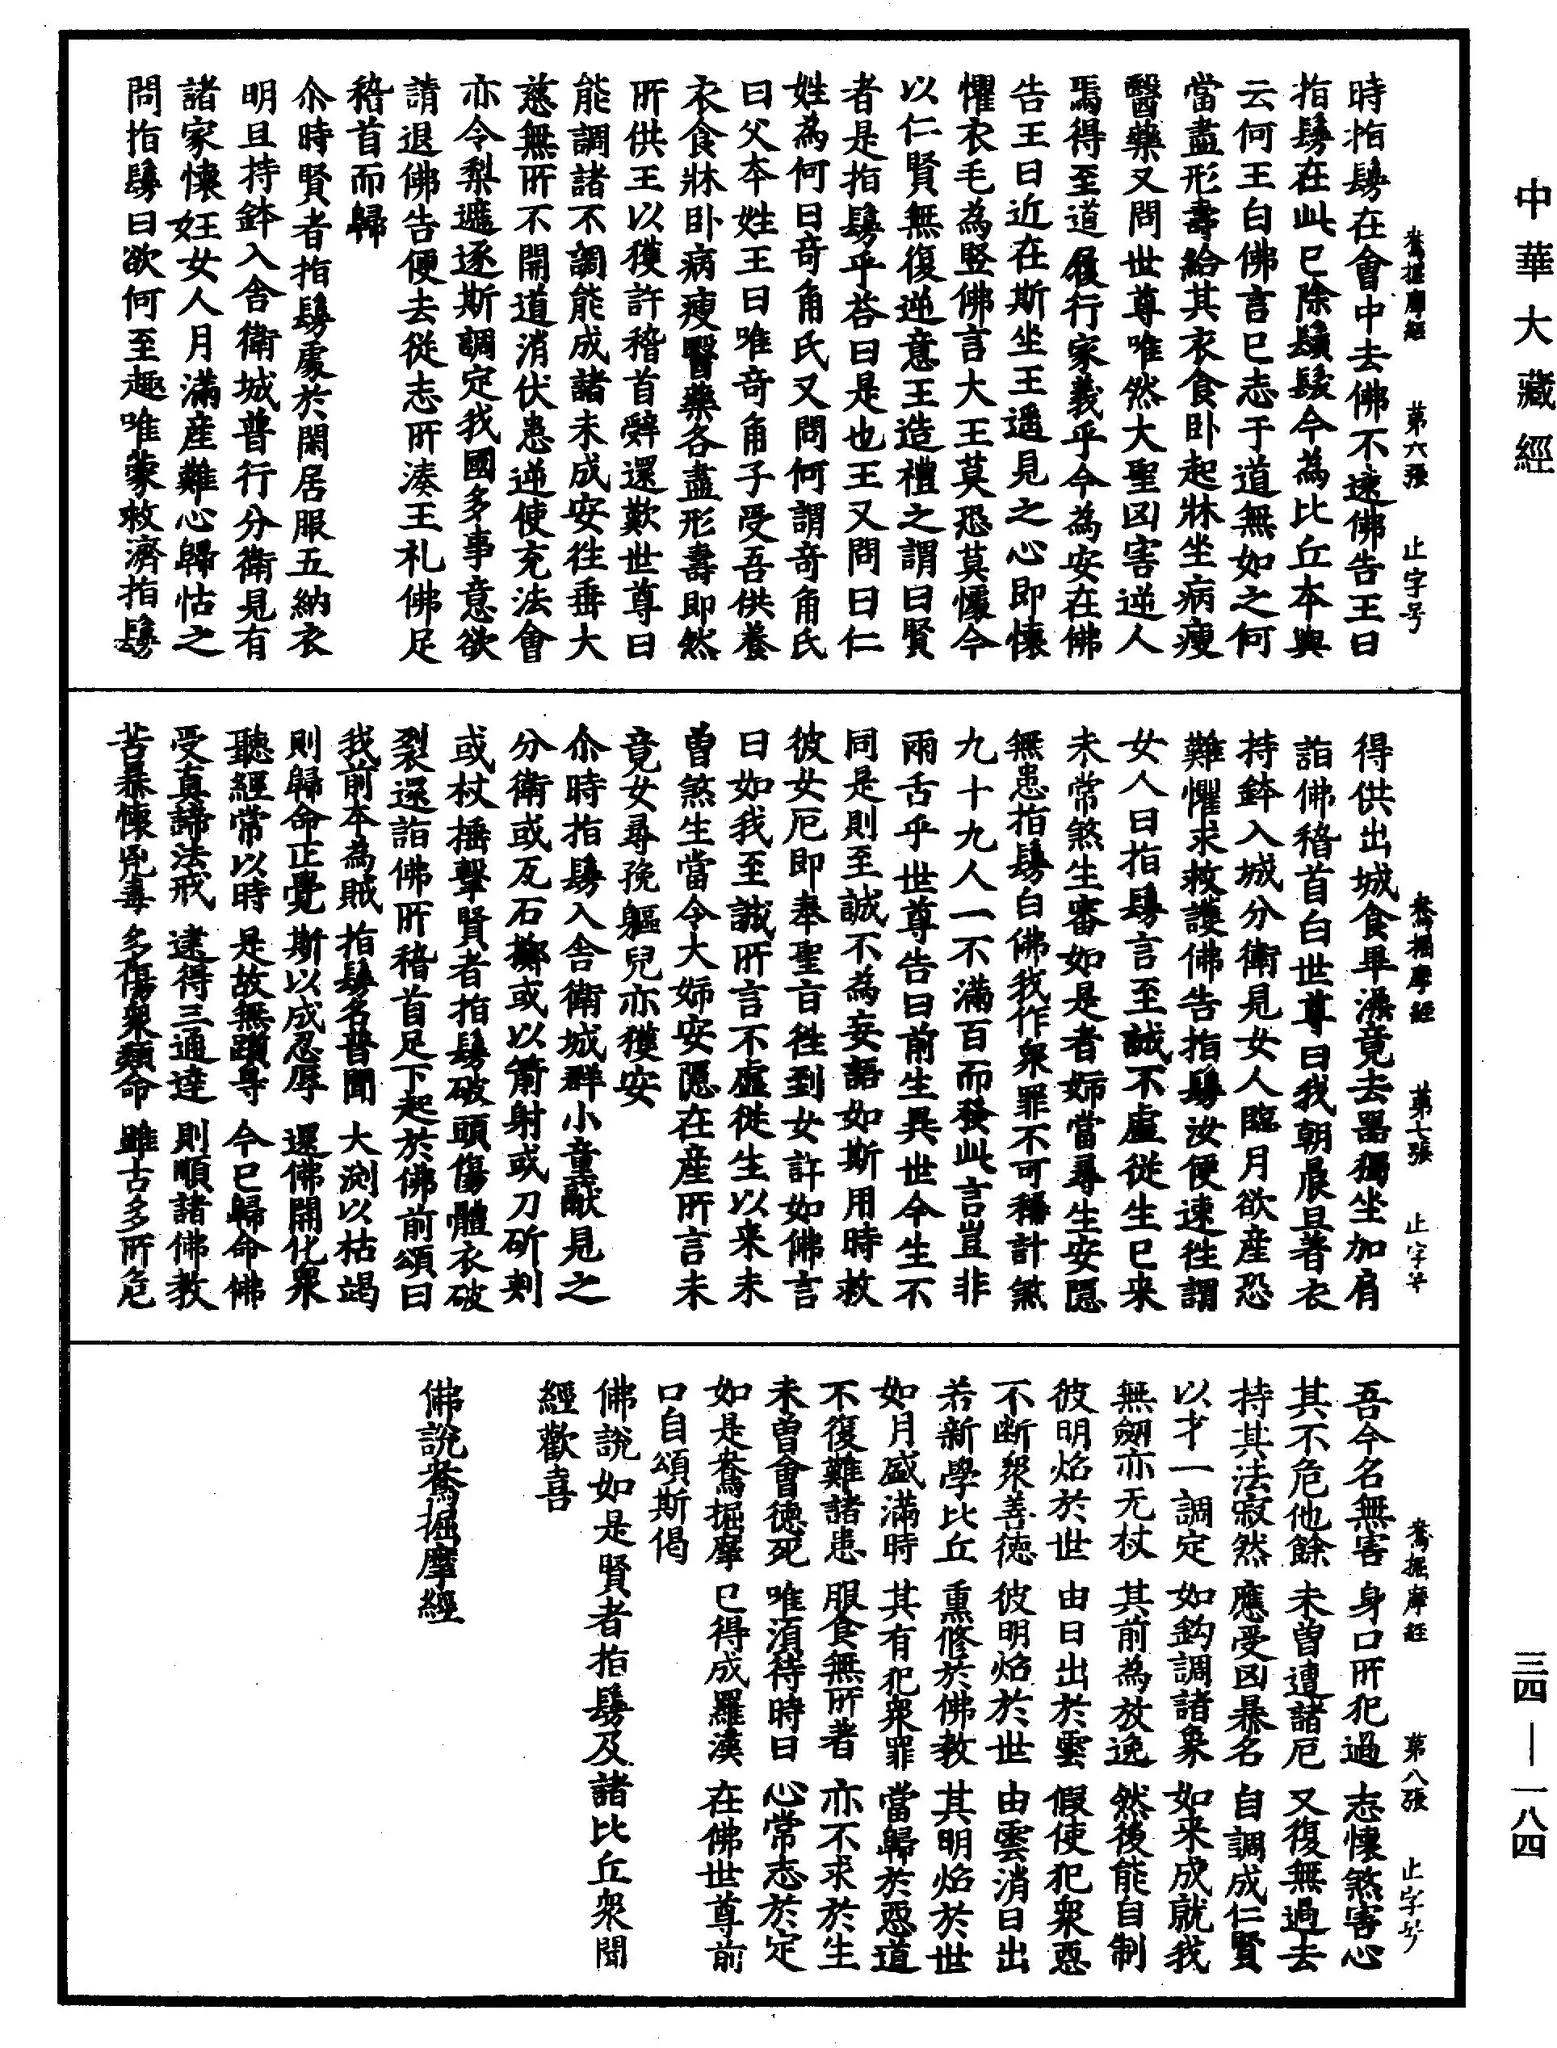 中華大藏經
鴦掘摩經 第六張 止字号
時指鬘在會中去佛不遠佛告王曰
指鬘在此已除鬚髮今為比丘本與
云何王白佛言已志于道無如之何
當盡形壽給其衣食卧起牀坐病瘦
醫藥又問世尊唯然大聖凶害逆人
焉得至道履行家義乎今為安在佛
告王曰近在斯坐王遥見之心即懷
懼衣毛為竪佛言大王莫恐莫懷今
以仁賢無復逆意王造禮之謂曰賢
者是指鬘乎荅曰是也王又問曰仁
姓為何曰奇角氏又問何謂奇角氏
曰父本姓王曰唯奇角子受吾供養
衣食牀卧病瘦醫藥各盡形壽即然
所供王以獲許稽首辞還歎世尊曰
能調諸不調能成諸未成安住垂大
慈無所不開道消伏患逆使充法會
亦令梨遮逐斯調定我國多事意欲
請退佛告便去從志所湊王礼佛足
稽首而歸
尒時賢者指鬘處於閑居服五納衣
明旦持鉢入舍衛城普行分衛見有
諸家懷妊女人月滿産難心歸怙之
問指鬘曰欲何至趣唯蒙救濟指鬘
鴦掘摩經 第七張 止字号
得供出城食畢澡竟去器獨坐加肩
詣佛稽首白世尊曰我朝晨旦著衣
持鉢入城分衛見女人臨月欲産恐
難懼求救護佛告指鬘汝便速往謂
女人曰指鬘言至誠不虚從生已来
未常煞生審如是者姉當尋生安隠
無患指鬘白佛我作衆罪不可稱計煞
九十九人一不滿百而發此言豈非
兩舌乎世尊告曰前生異世今生不
同是則至誠不為妄語如斯用時救
彼女厄即奉聖旨往到女許如佛言
曰如我至誠所言不虚從生以来未
曽煞生當令大姉安隠在産所言未
竟女尋娩軀兒亦獲安
尒時指鬘入舍衛城群小童獻見之
分衛或瓦石擲或以箭射或刀斫刾
或杖捶擊賢者指鬘破頭傷體衣破
裂還詣佛所稽首足下起於佛前頌曰
我前本為賊 指鬘名普聞 大渕以枯竭
則歸命正覺 斯以成忍辱 還佛開化衆
聽經常以時 是故無躓㝵 今已歸命佛
受真諦法戒 逮得三通逹 則順諸佛教
苦暴懷兇毒 多傷衆類命 雖古多所危
鴦掘摩經 第八張 止字号
吾今名無害 身口所犯過 志懷煞害心
其不危他餘 未曽遭諸厄 又復無過去
持其法寂然 應受凶暴名 自調成仁賢
以才一調定 如鈎調諸象 如来成就我
無劒亦无杖 其前為放逸 然後能自制
彼明焰於世 由日出於雲 假使犯衆惡
不断衆善徳 彼明焰於世 由雲消日出
若新學比丘 熏修於佛教 其明焰於世
如月盛滿時 其有犯衆罪 當歸於惡道
不復難諸患 服食無所著 亦不求於生
未曽會德死 唯湏待時日 心常志於定
如是鴦掘摩 已得成羅漢 在佛世尊前
口自頌斯偈
佛說如是賢者指鬘及諸比丘衆聞
經歡喜
佛說鴦掘摩經
三四—一八四